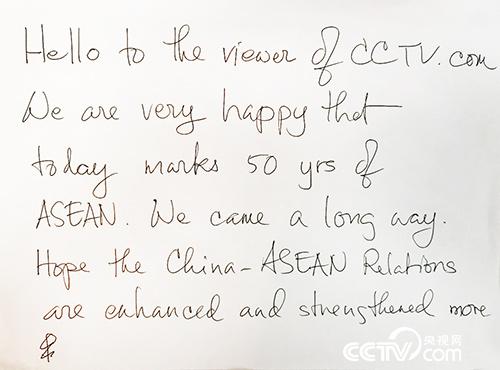 Hello to the viewer of CCTV.com
We are very happy that
today marks 50 yrs of
ASEAN. We came a long way.
Hope the China-ASEAN Relations
are enhanced and strengthened more
&
央视网
CCTV.com